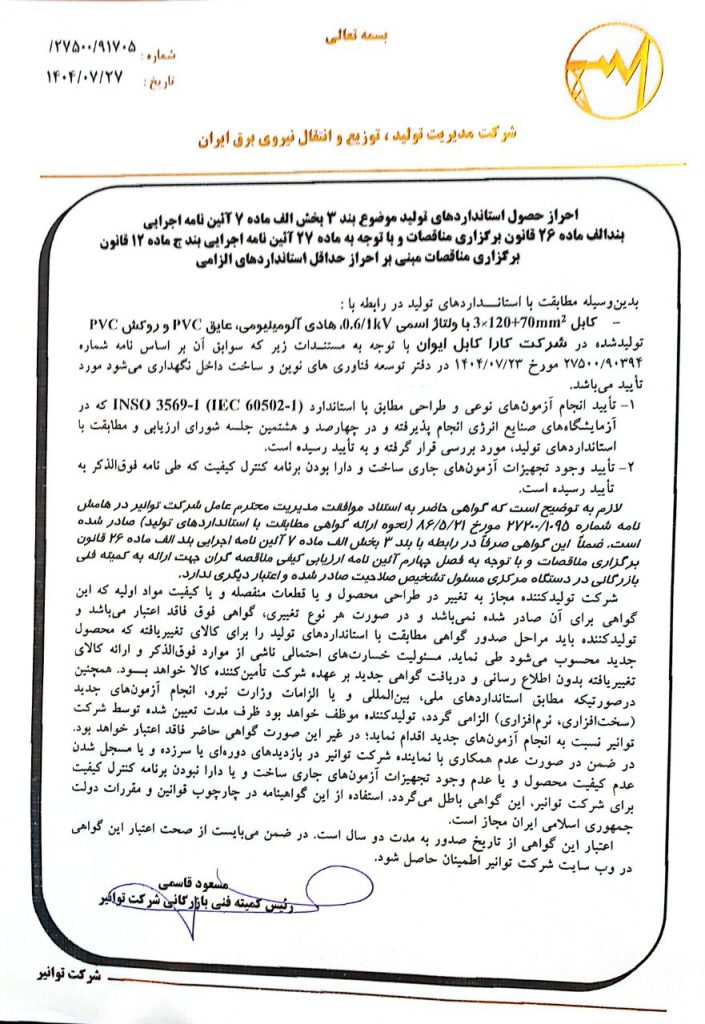 بسمه تعالی
شماره: ۲۷۵۰۰/۹۱۷۰۵/
تاریخ: ۱۴۰۴/۰۷/۲۷
شرکت مدیریت تولید ، توزیع و انتقال نیروی برق ایران
احراز حصول استانداردهای تولید موضوع بند ۳ بخش الف ماده ۷ آئین نامه اجرایی
بندالف ماده ۲۶ قانون برگزاری مناقصات و با توجه به ماده ۲۷ آئین نامه اجرایی بند ج ماده ۱۲ قانون
برگزاری مناقصات مبنی بر احراز حداقل استانداردهای الزامی
بدین‌وسیله مطابقت با استانداردهای تولید در رابطه با :
– کابل 3×120+70mm² با ولتاژ اسمی 0.6/1kV، هادی آلومینیومی، عایق PVC و روکش PVC
تولیدشده در شرکت کارا کابل ایوان با توجه به مستندات زیر که سوابق آن بر اساس نامه شماره
۲۷۵۰۰/۹۰۳۹۴ مورخ ۱۴۰۴/۰۷/۲۳ در دفتر توسعه فناوری های نوین و ساخت داخل نگهداری می‌شود مورد
تأیید می‌باشد.
۱– تأیید انجام آزمون‌های نوعی و طراحی مطابق با استاندارد INSO 3569-1 (IEC 60502-1) که در
آزمایشگاه‌های صنایع انرژی انجام پذیرفته و در چهارصد و هشتمین جلسه شورای ارزیابی و مطابقت با
استانداردهای تولید، مورد بررسی قرار گرفته و به تأیید رسیده است.
۲– تأیید وجود تجهیزات آزمون‌های جاری ساخت و دارا بودن برنامه کنترل کیفیت که طی نامه فوق‌الذکر به
تأیید رسیده است.
لازم به توضیح است که گواهی حاضر به استناد موافقت مدیریت محترم عامل شرکت توانیر در هامش
نامه شماره ۲۷۲۰۰/۱۰۹۵ مورخ ۸۶/۵/۲۱ (نحوه ارائه گواهی مطابقت با استانداردهای تولید) صادر شده
است. ضمناً این گواهی صرفاً در رابطه با بند ۳ بخش الف ماده ۷ آئین نامه اجرایی بند الف ماده ۲۶ قانون
برگزاری مناقصات و با توجه به فصل چهارم آئین نامه ارزیابی کیفی مناقصه گران جهت ارائه به کمیته فنی
بازرگانی در دستگاه مرکزی مسئول تشخیص صلاحیت صادر شده و اعتبار دیگری ندارد.
شرکت تولیدکننده مجاز به تغییر در طراحی محصول و یا قطعات منفصله و یا کیفیت مواد اولیه که این
گواهی برای آن صادر شده نمی‌باشد و در صورت هر نوع تغییری، گواهی فوق فاقد اعتبار می‌باشد و
تولیدکننده باید مراحل صدور گواهی مطابقت با استانداردهای تولید را برای کالای تغییریافته که محصول
جدید محسوب می‌شود طی نماید. مسئولیت خسارت‌های احتمالی ناشی از موارد فوق‌الذکر و ارائه کالای
تغییریافته بدون اطلاع رسانی و دریافت گواهی جدید بر عهده شرکت تأمین‌کننده کالا خواهد بود. همچنین
درصورتیکه مطابق استانداردهای ملی، بین‌المللی و یا الزامات وزارت نیرو، انجام آزمون‌های جدید
(سخت‌افزاری، نرم‌افزاری) الزامی گردد، تولیدکننده موظف خواهد بود ظرف مدت تعیین شده توسط شرکت
توانیر نسبت به انجام آزمون‌های جدید اقدام نماید؛ در غیر این صورت گواهی حاضر فاقد اعتبار خواهد بود.
در ضمن در صورت عدم همکاری با نماینده شرکت توانیر در بازدیدهای دوره‌ای یا سرزده و یا مسجل شدن
عدم کیفیت محصول و یا عدم وجود تجهیزات آزمون‌های جاری ساخت و یا دارا نبودن برنامه کنترل کیفیت
برای شرکت توانیر، این گواهی باطل می‌گردد. استفاده از این گواهینامه در چارچوب قوانین و مقررات دولت
جمهوری اسلامی ایران مجاز است.
اعتبار این گواهی از تاریخ صدور به مدت دو سال است. در ضمن می‌بایست از صحت اعتبار این گواهی
در وب سایت شرکت توانیر اطمینان حاصل شود.
مسعود قاسمی
رئیس کمیته فنی بازرگانی شرکت توانیر
شرکت توانیر